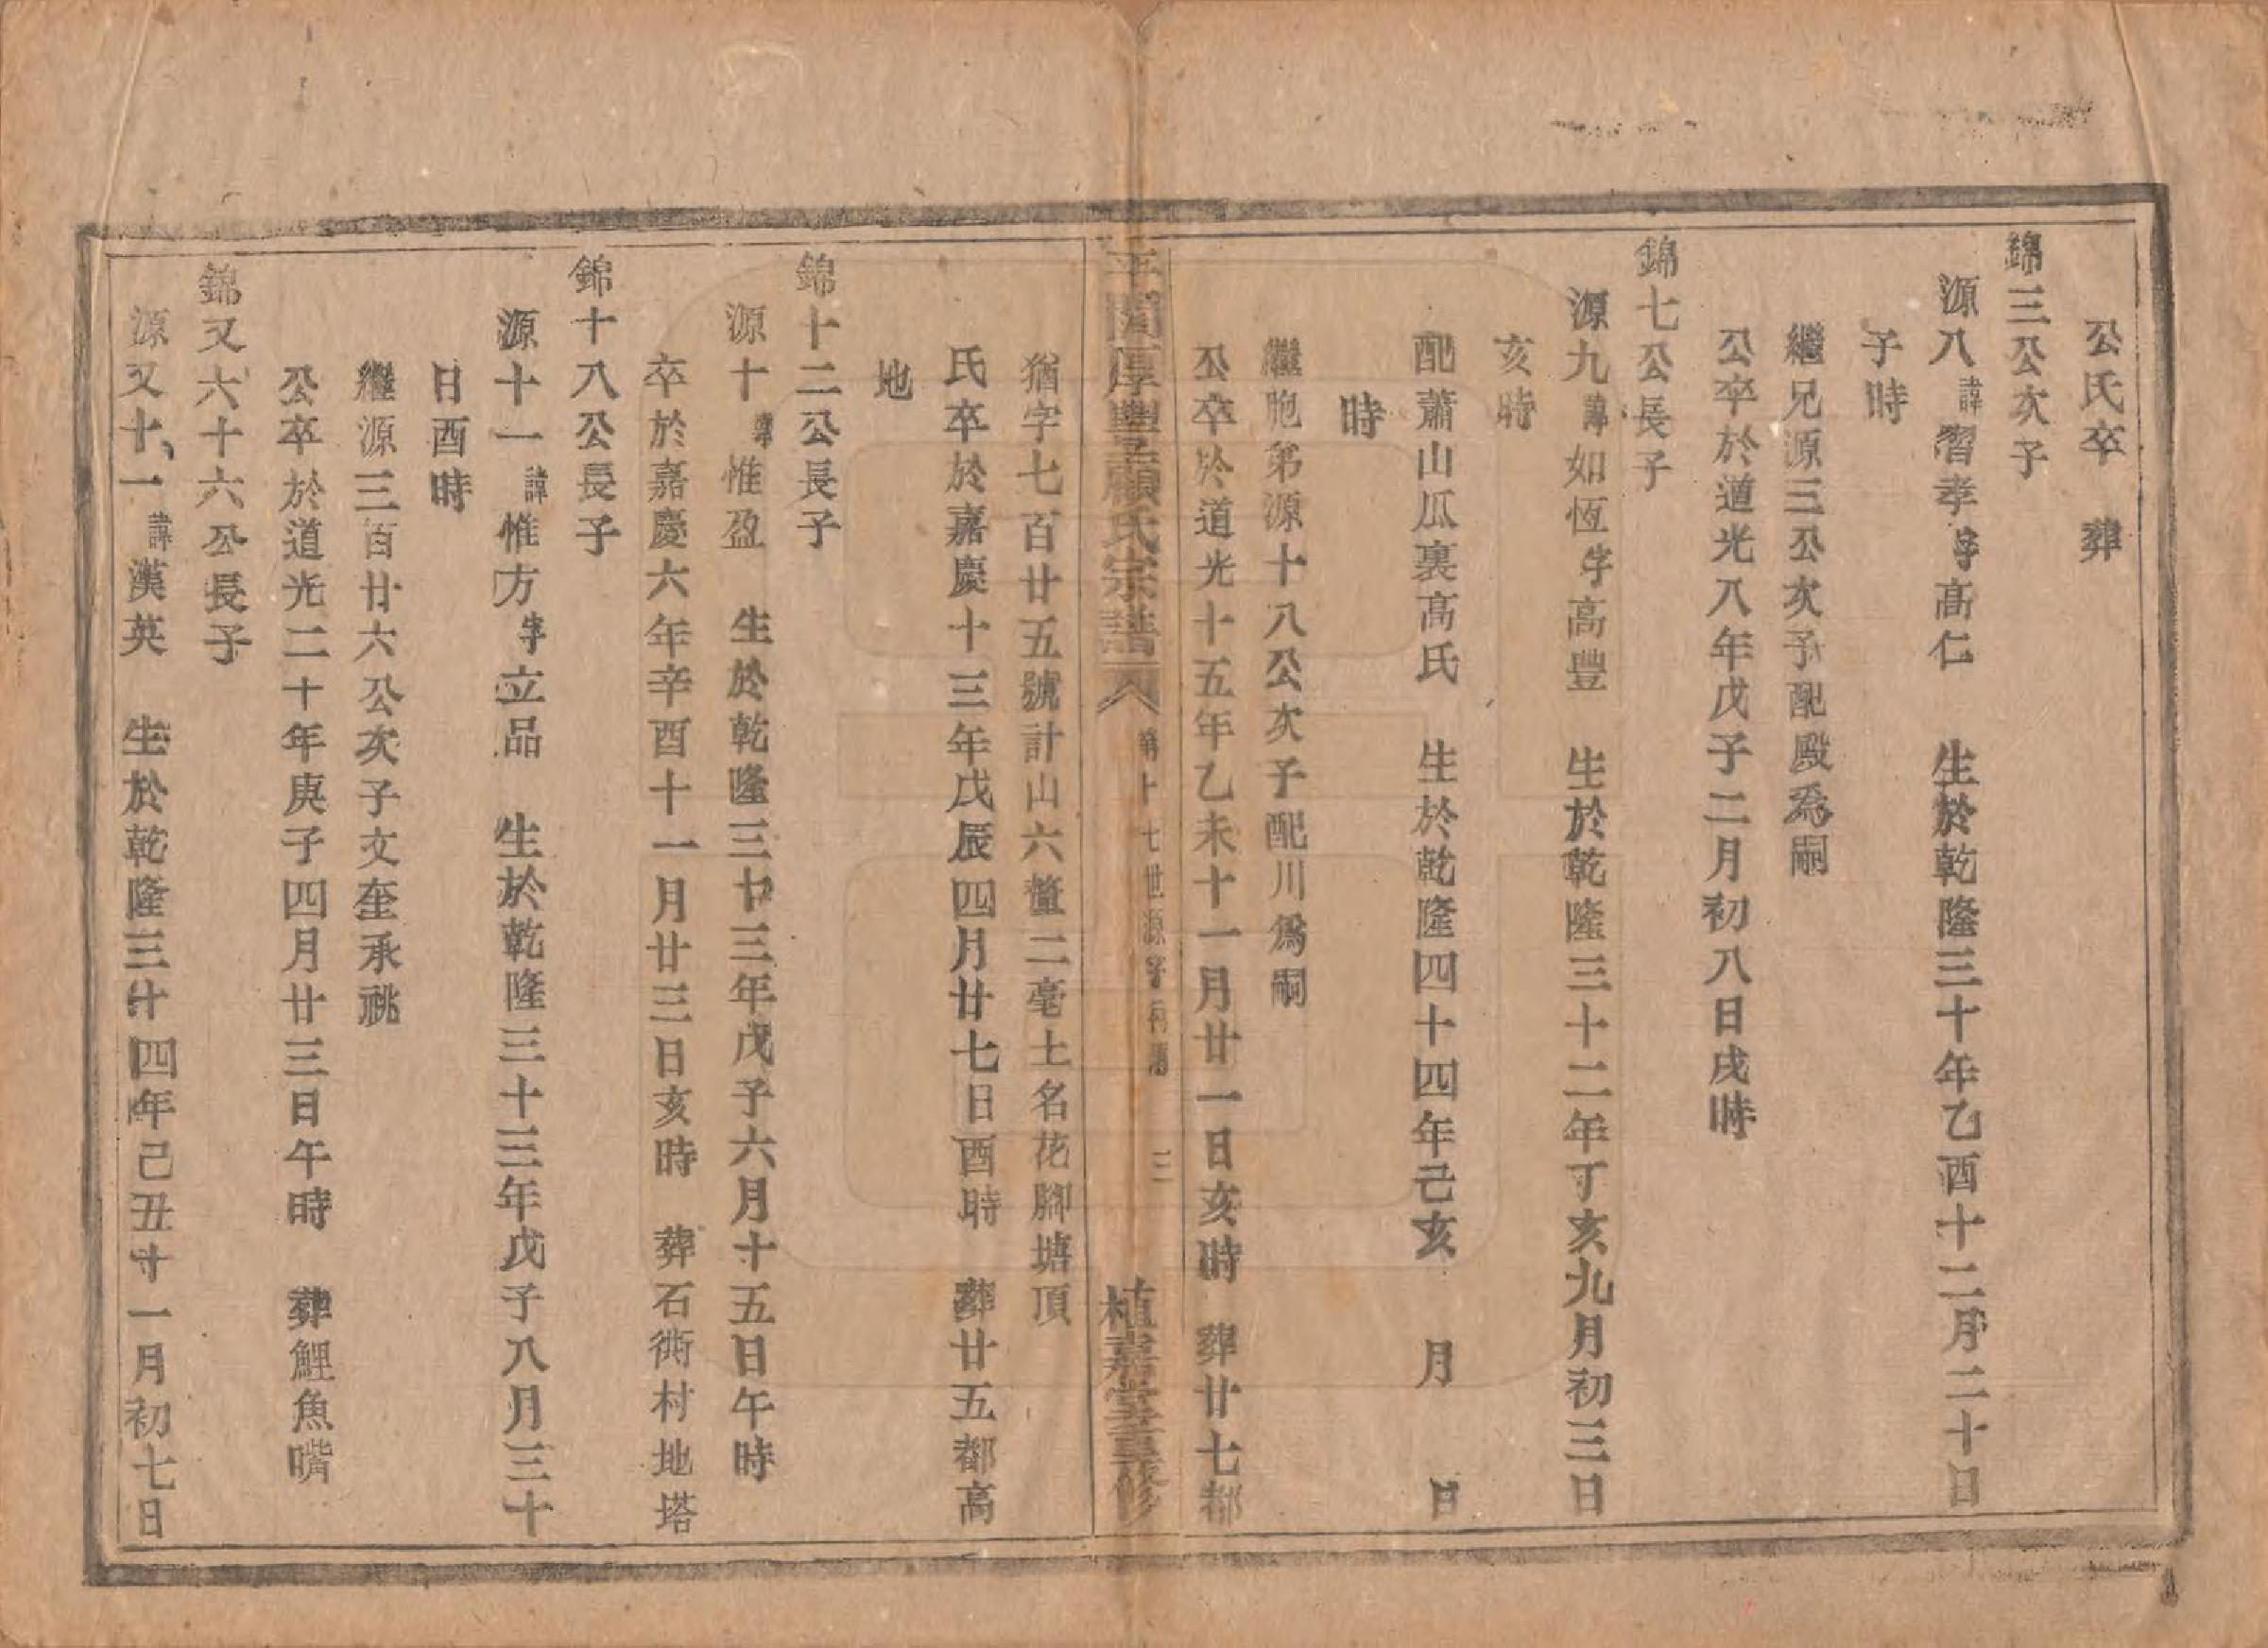 公氏卒　葬
錦三公次子
源八諱習孝字高仁　生於乾隆三十年乙酉十二月二十日
子時
繼兄源三公次子配殿為嗣
公卒於道光八年戊子二月初八日戌時
錦七公長子
源九諱如恆字高豐　生於乾隆三十二年丁亥九月初三日
亥時
配蕭山瓜裏高氏　生於乾隆四十四年己亥　月　日
時
繼胞弟源十八公次子配川爲嗣
公卒於道光十五年乙未十一月廿一日亥時　葬廿七都
平閣厚豐顧氏宗譜　卷八　第十七世源字行譜　三　植嘉堂重修
猶字七百廿五號計山六釐二毫土名花腳塘頂
氏卒於嘉慶十三年戊辰四月廿七日酉時　葬廿五都高
地
錦十二公長子
源十諱惟盈　生於乾隆三十三年戊子六月十五日午時
卒於嘉慶六年辛酉十一月廿三日亥時　葬石衖村地塔
錦十八公長子
源十一諱惟方字立品　生於乾隆三十三年戊子八月三十
日酉時
繼源三百廿六公次子文奎承祧
公卒於道光二十年庚子四月廿三日午時　葬鯉魚嘴
錦又六十六公長子
源又十一諱漢英　生於乾隆三十四年己丑十一月初七日